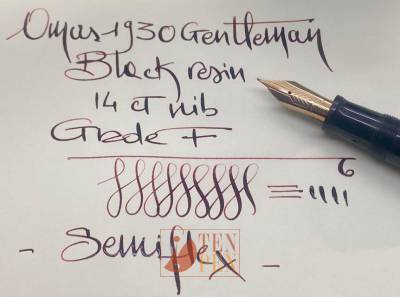 Omas 1930 Gentleman
Black resin
14 ct nib
Grade F
6
- Semiflex -
TEN
PEN